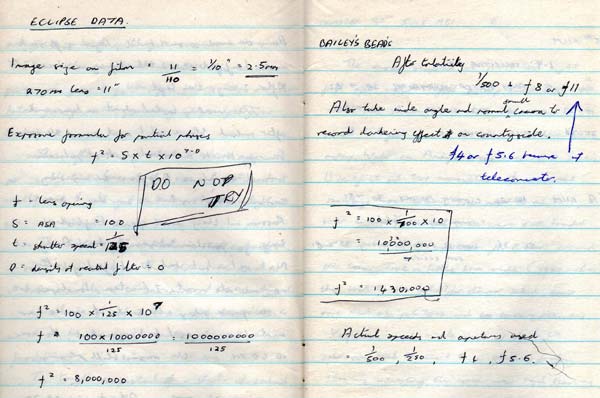 ECLIPSE DATA.
Image size on film = 11/110 = 1/10" = 2.5mm
270mm lens = 11"
Exposure formula for partial phases
f² = S x t x 10^7-D
DO NOT TRY
f = lens opening
S = ASA = 100
t = shutter speed = 1/125
D = density of neutral filter = 0
f² = 100 x 1/125 x 10^7
f² = 100x10000000/125 = 1000000000/125
f² = 8,000,000
BAILEY'S BEADS
After totality
1/500 & f8 or f11
Also take wide angle and normal camera to
record darkening effect on countryside.
f4 or f5.6 because of
teleconverter.
f² = 100 x 1/700 x 10
= 10000,000/7
f² = 1430,000
Actual speeds and apertures used
= 1/500, 1/250, f4, f5.6.